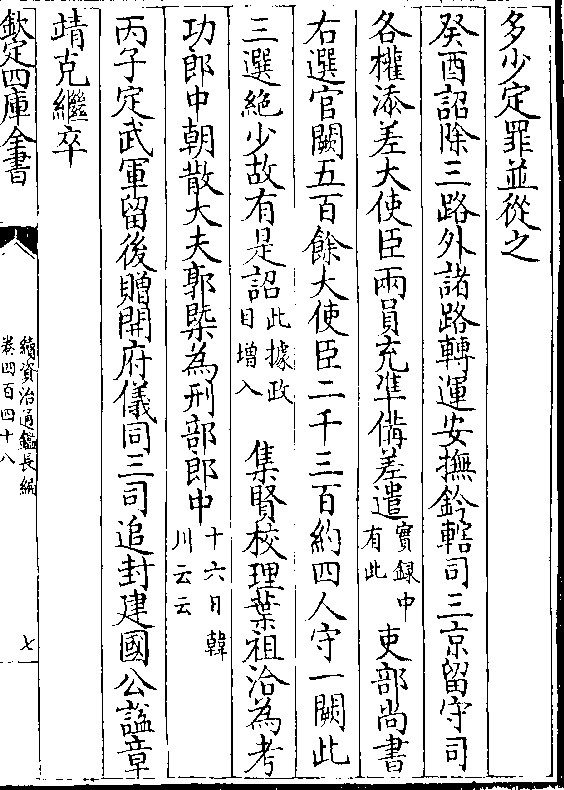 多少定罪並從之
癸酉詔除三路外諸路轉運安撫鈐轄司三京留守司
各權添差大使臣兩員充準備差遣實録中有此吏部尚書
右選官闕五百餘大使臣二千三百約四人守一闕此
三選絶少故有是詔此據政目增入集賢校理葉祖洽為考
功郎中朝散大夫郭槩為刑部郎中十六日韓川云云
丙子定武軍留後贈開府儀同三司追封建國公諡章
靖克繼卒
欽定四庫全書
續資治通鑑長編
卷四百四十八
七